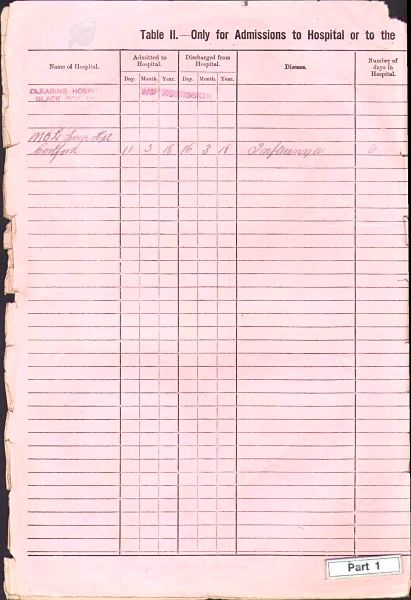 Table II.—Only for Admissions to Hospital or to the
Name of Hospital.
Admitted to Hospital.
Discharged from Hospital.
Disease.
Number of days in Hospital.
Day. Month. Year. Day. Month. Year.
CLEARING HOSPI
NO ADMISSION
BLACK BOY
Codford 11 3 18 16 3 18 Influenza 6
Part 1